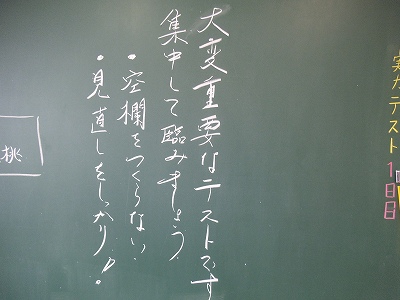 実力テスト1日目
大変重要なテストです
集中して臨みましょう
・空欄をつくらない.
・見直しをしっかり!!
桃